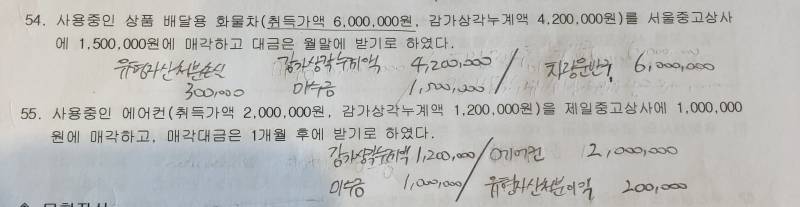 54. 사용중인 상품 배달용 화물차(취득가액 6,000,000원, 감가상각누계액 4,200,000원)를 서울중고상사
에 1,500,000원에 매각하고 대금은 월말에 받기로 하였다.
유형자산처분손실 감가상각누계액 4,200,000 / 차량운반구 6,000,000
300,000 미수금 1,500,000
55. 사용중인 에어컨(취득가액 2,000,000원, 감가상각누계액 1,200,000원)을 제일중고상사에 1,000,000
원에 매각하고, 매각대금은 1개월 후에 받기로 하였다.
감가상각누계액 1,200,000 / 에어컨 2,000,000
미수금 1,000,000 / 유형자산처분이익 200,000